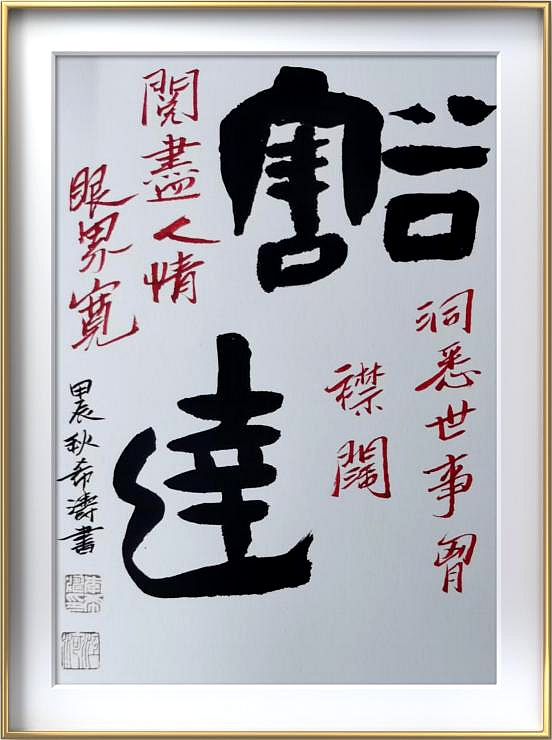 豁達
洞悉世事胷
襟闊
閱盡人情
眼界寬
甲辰秋希濤書